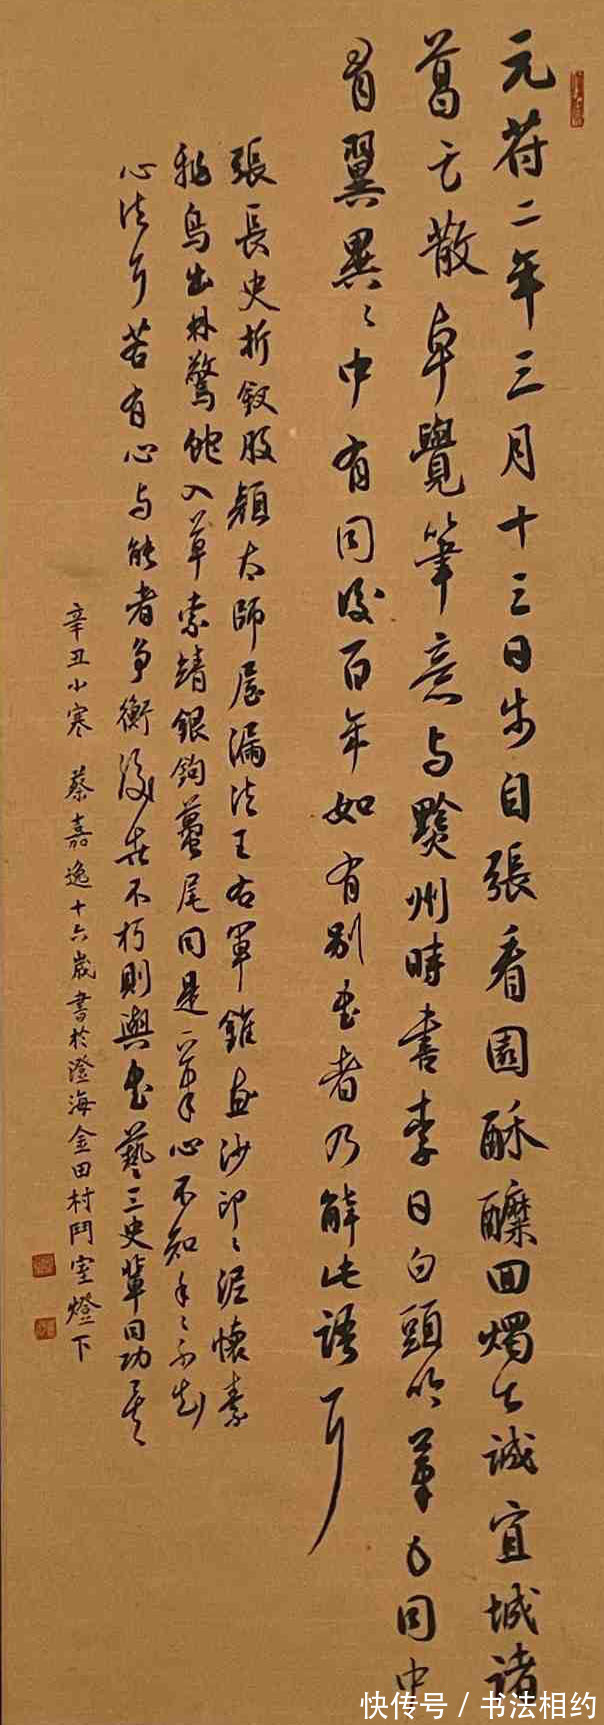 元符二年三月十三日步自張看園酥醾回燭出誠宜城諸
葛元散卓覺筆意与黔州時書李白白頭吟筆力同中
有翼異〻中有同後百年如有別書者乃解此語耳
張長史折釵股顏太師屋漏法王右軍錐畫沙印〻泥懷素
飛鳥出林驚蛇入草索靖銀鉤蠆尾同是一筆心不知手〻不知
心法耳若有心与能者爭衡後世不朽則與書藝工史輩同功矣
辛丑小寒 蔡嘉逸十六歲書於澄海金田村鬥室燈下
快传号 / 书法相约